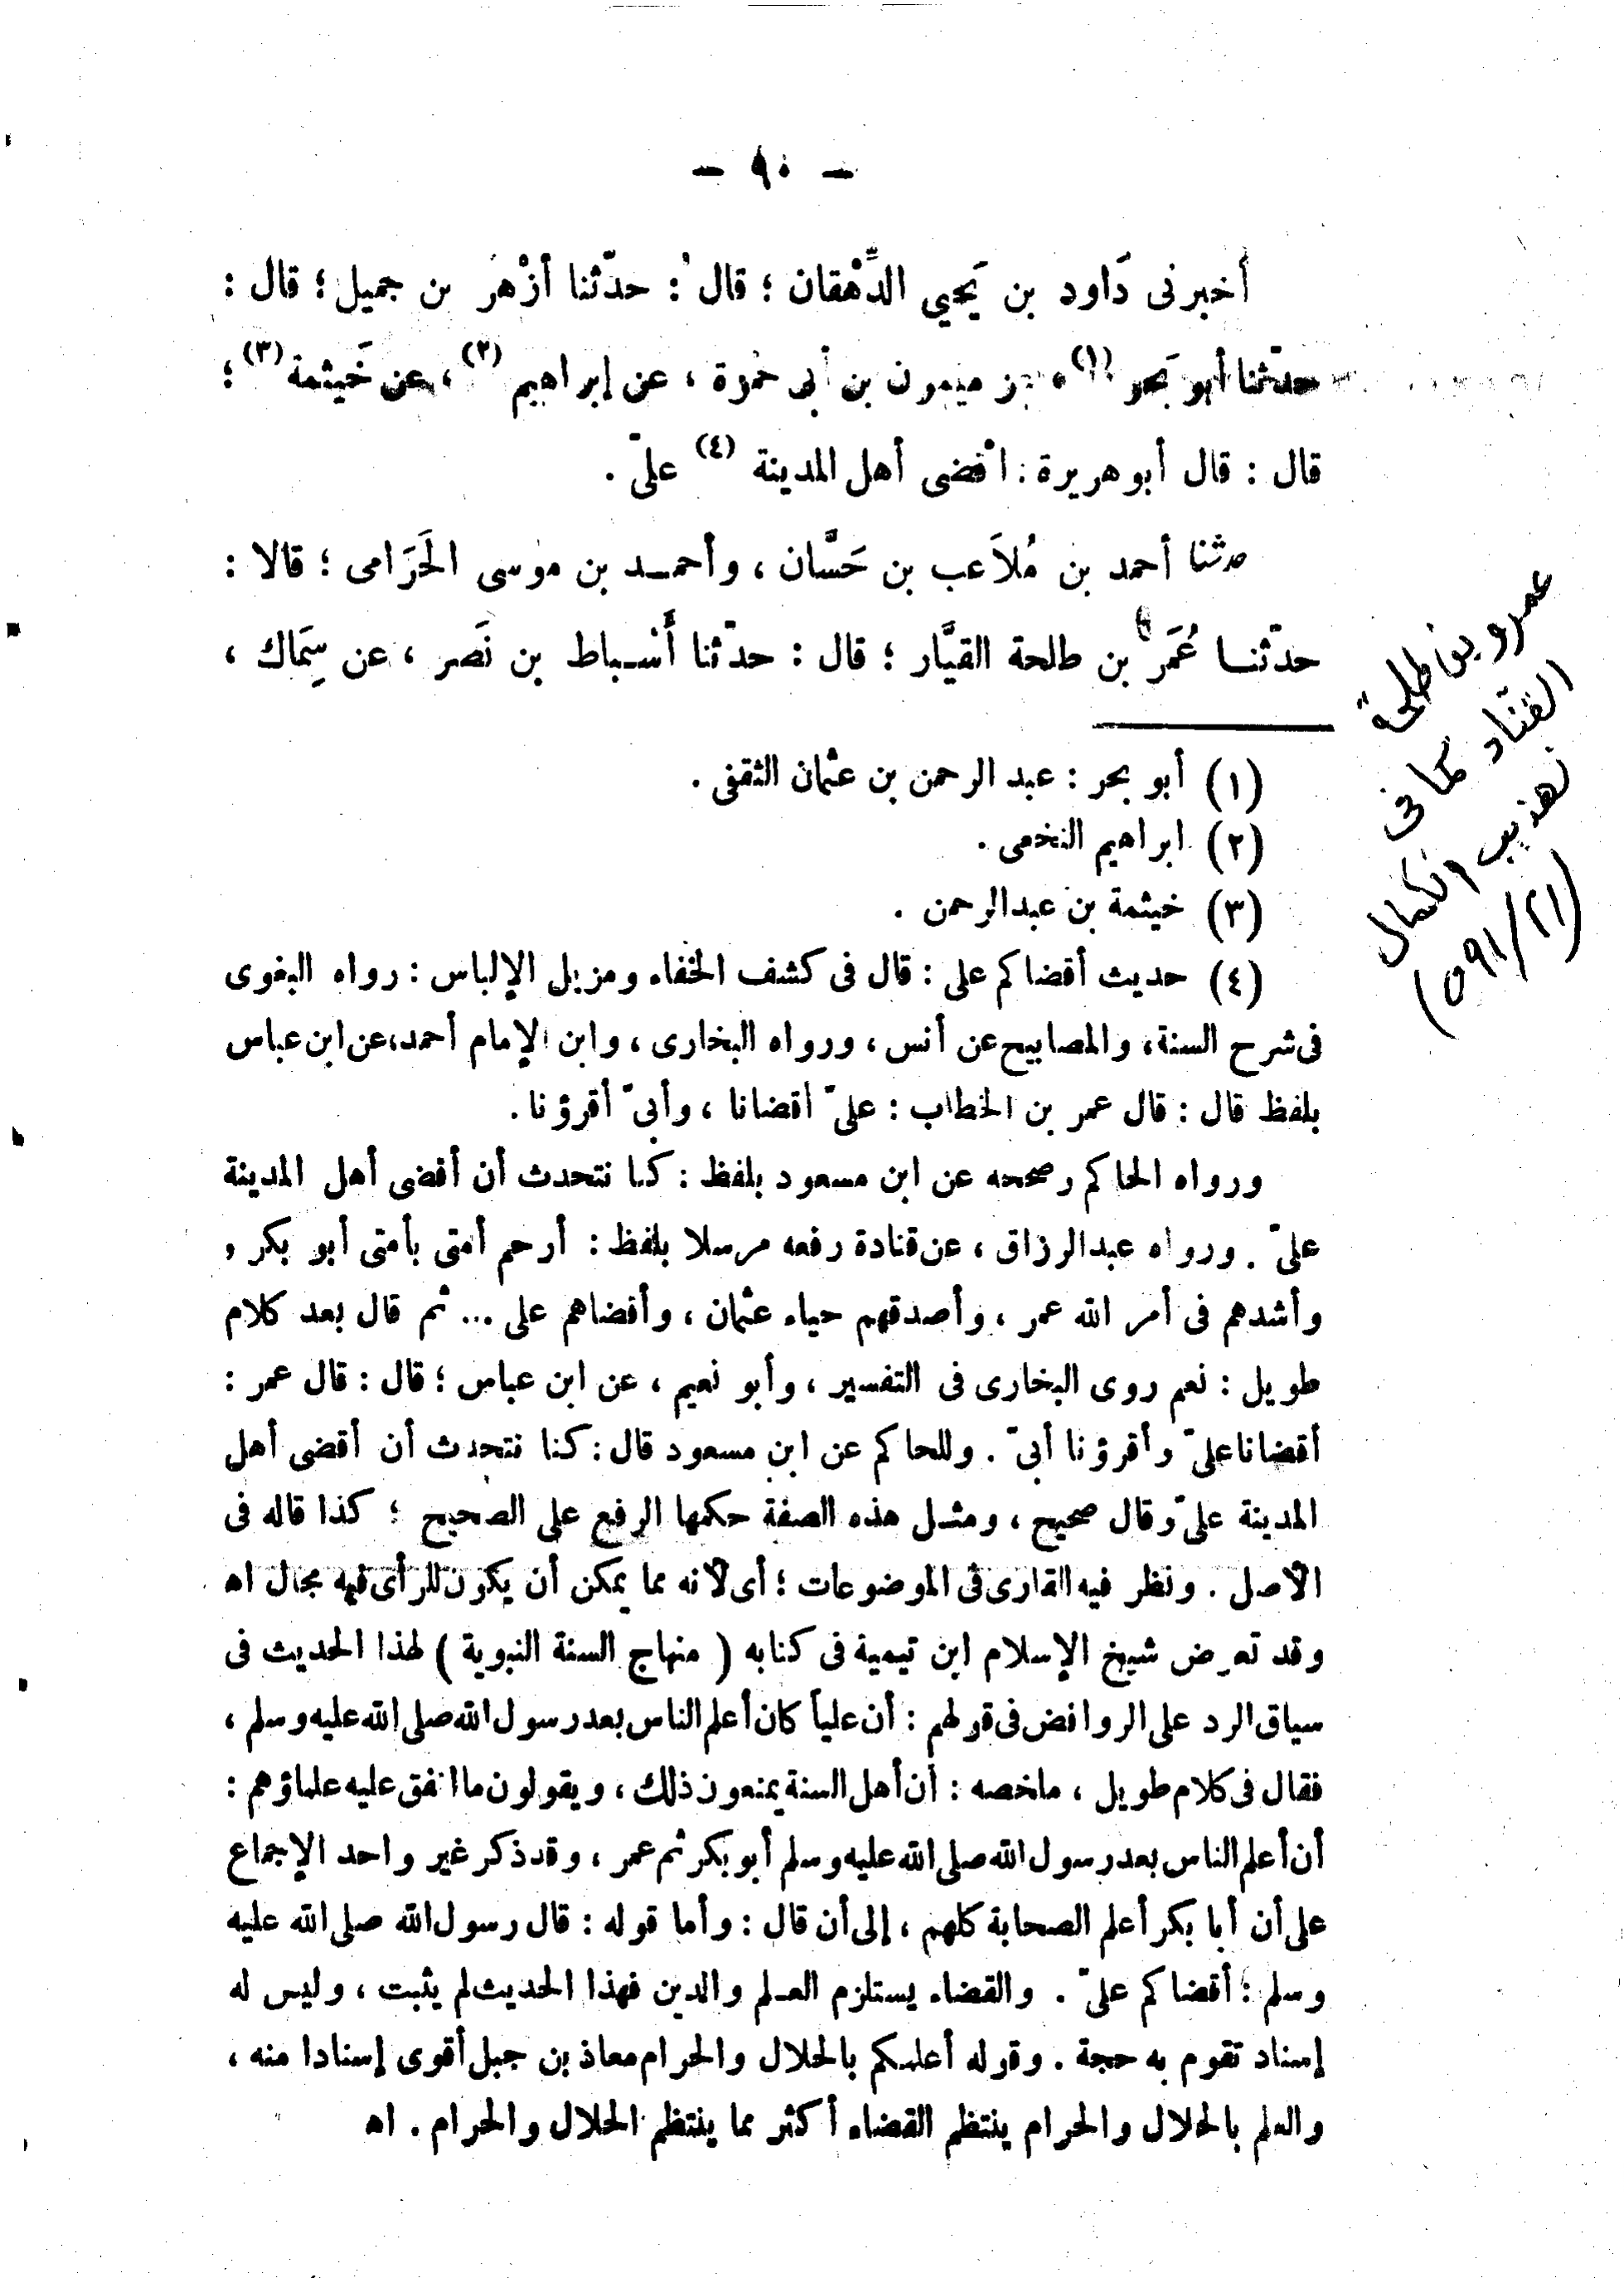 — ٩٠ —
أخبرنى دَاود بن يَحْيي الدِّهْقان ؛ قال : حدّثنا أزْهَر بن جميل ؛ قال :
حدّثنا أبو بَحر (١) عن ميمون بن أبى حمزة ، عن إبراهيم (٢) ، عن خَيثمة (٣) ؛
قال : قال أبو هريرة : اقضى أهل المدينة (٤) علىّ .
حدثنا أحمد بن مُلاَعب بن حَسَّان ، وأحمـد بن موسى الحَرَامى ؛ قالا :
حدّثنـا عُمَر بن طلحة القيَّار ؛ قال : حدّثنا أَسْـباط بن نَصر ، عن سِمَاك ،
عمرو بن طلحة
القناد كما فى
تهذيب الكمال
(٥٩١/٢١)
(١) أبو بحر : عبد الرحمن بن عثمان الثقفى .
(٢) ابراهيم النخعى .
(٣) خيثمة بن عبدالرحمن .
(٤) حديث أقضاكم على : قال فى كشف الخفاء ومزيل الإلباس : رواه البغوى
فى شرح السنة، والمصابيح عن أنس ، ورواه البخارى ، وابن الإمام أحمد، عن ابن عباس
بلفظ قال : قال عمر بن الخطاب : علىّ أقضانا ، وأبىّ أقرؤنا .
ورواه الحاكم وصححه عن ابن مسعود بلفظ : كنا نتحدث أن أقضى أهل المدينة
علىّ . ورواه عبدالرزاق ، عن قتادة رفعه مرسلا بلفظ : أرحم أمتى بأمتى أبو بكر ,
وأشدهم فى أمر الله عمر ، وأصدقهم حياء عثمان ، وأقضاهم على ... ثم قال بعد كلام
طويل : نعم روى البخارى فى التفسير ، وأبو نعيم ، عن ابن عباس ؛ قال : قال عمر :
أقضانا علىّ وأقرؤنا أبىّ . وللحاكم عن ابن مسعود قال : كنا نتحدث أن أقضى أهل
المدينة علىّ وقال صحيح ، ومثـل هذه الصفة حكمها الرفع على الصحيح ؛ كذا قاله فى
الأصل . ونظر فيه القارى فى الموضوعات ؛ أى لأنه مما يمكن أن يكون للرأى فيه مجال اه
وقد تعرض شيخ الإسلام ابن تيمية فى كتابه ( منهاج السنة النبوية ) لهذا الحديث فى
سياق الرد على الروافض فى قولهم : أن علياً كان أعلم الناس بعد رسول الله صلى الله عليه وسلم ،
فقال فى كلام طويل ، ماخصه : أن أهل السنة يمنعون ذلك ، ويقولون ما اتفق عليه علماؤهم :
أن أعلم الناس بعد رسول الله صلى الله عليه وسلم أبو بكر ثم عمر ، وقد ذكر غير واحد الإجماع
على أن أبا بكر أعلم الصحابة كلهم ، إلى أن قال : وأما قوله : قال رسول الله صلى الله عليه
وسلم : أقضاكم علىّ . والقضاء يستلزم العـلم والدين فهذا الحديث لم يثبت ، وليس له
إسناد تقوم به حجة . وقوله أعلمكم بالحلال والحرام معاذ بن جبل أقوى إسنادا منه ،
والعلم بالحلال والحرام ينتظم القضاء أكثر مما ينتظم الحلال والحرام . اه